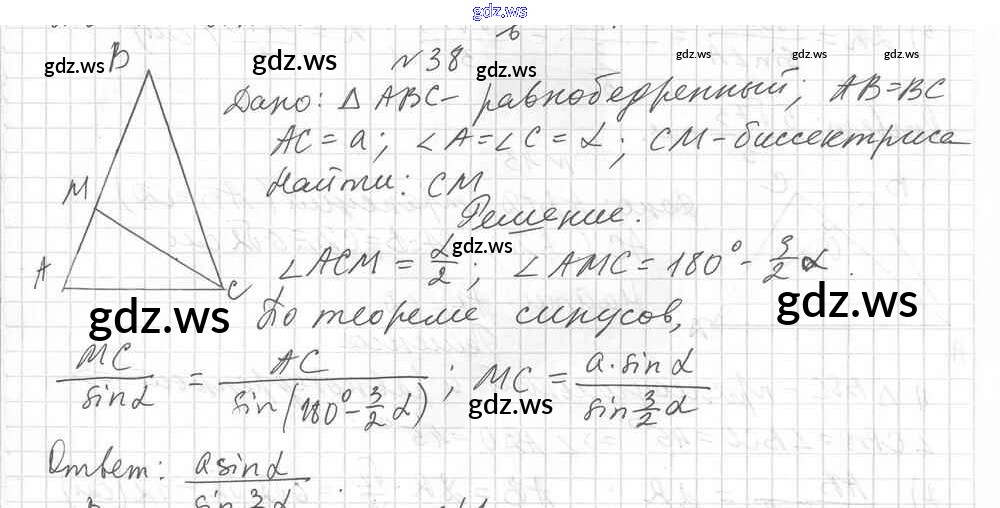 gdz.ws
№38
gdz.ws gdz.ws gdz.ws gdz.ws gdz.ws gdz.ws
B
Дано: △ ABC - равнобедренный; AB=BC
AC = a; ∠A=∠C = α; CM - биссектриса
Найти: CM
M
Решение.
gdz.ws
∠ACM = α/2; ∠AMC = 180° - 3/2 α.
A C
gdz.ws gdz.ws
По теореме синусов,
MC/sinα = AC/sin(180° - 3/2 α); MC = a·sinα/sin 3/2 α
gdz.ws
Ответ: a sinα/sin 3/2 α